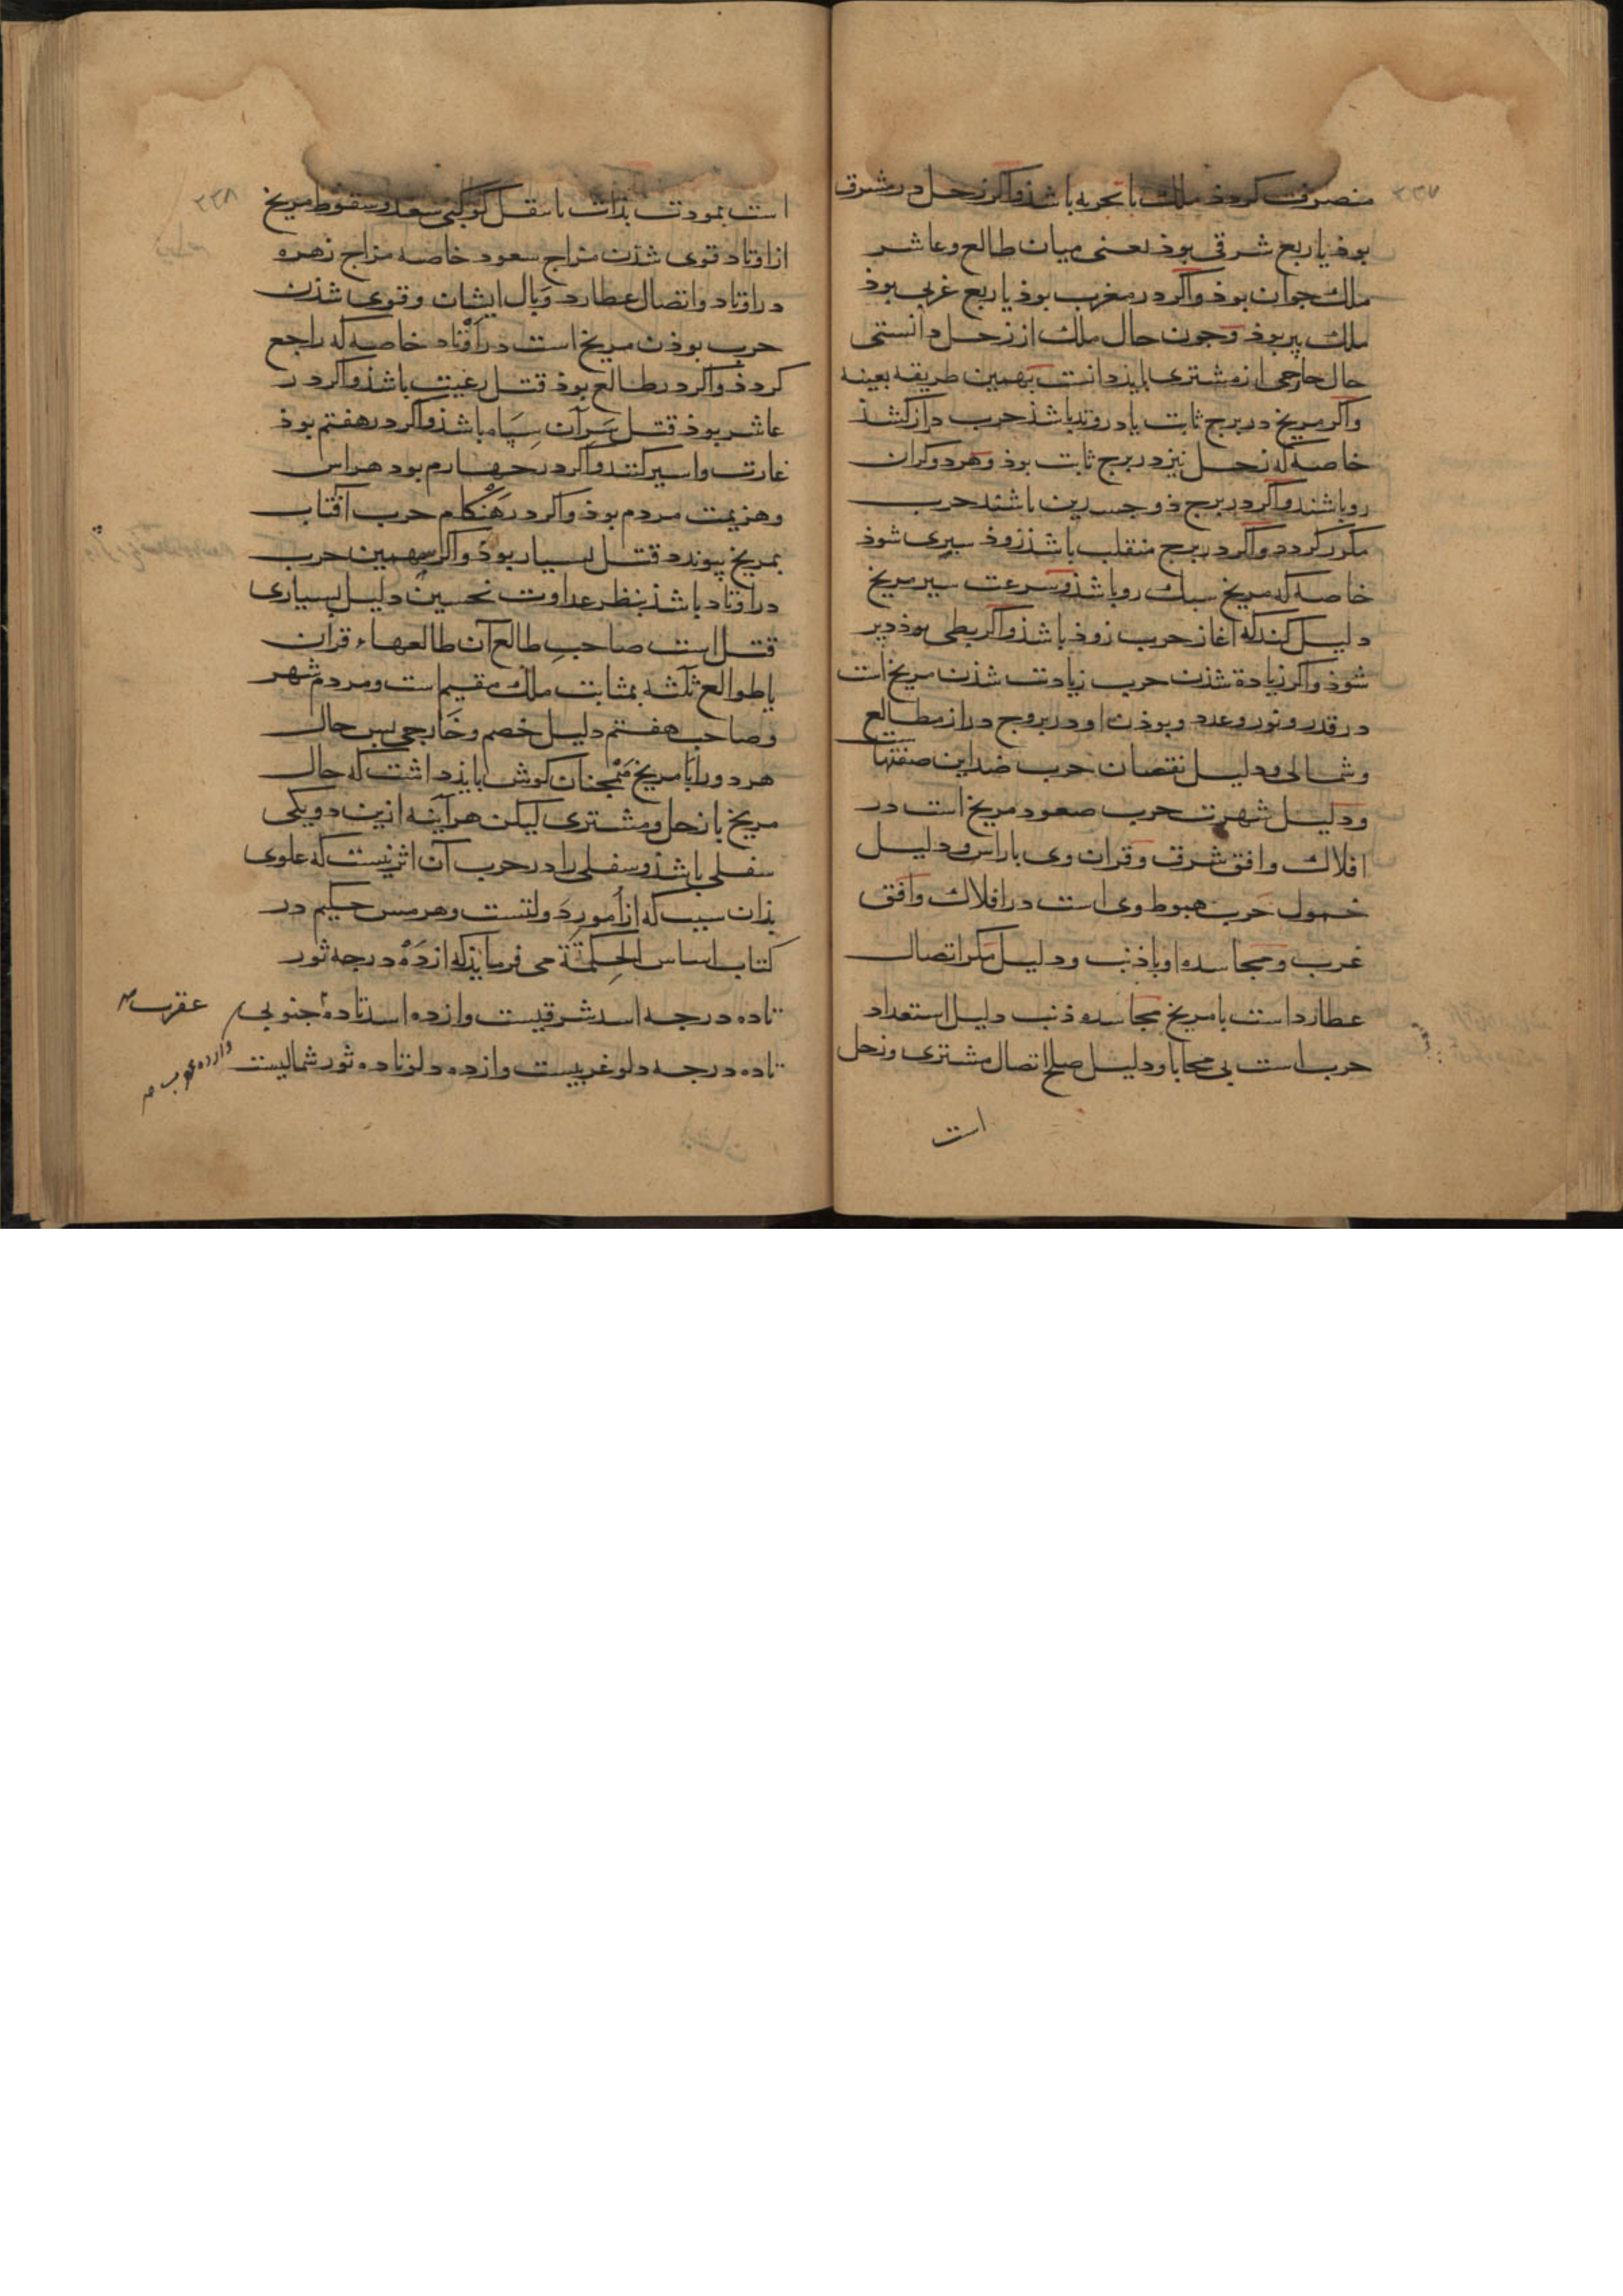 ۲۳۷
منصرف کردذ ملک باتجربه باشذ واکر زحل در مشرق
بوذ یا ربع شرقی بوذ یعنی میان طالع وعاشر
ملک جوان بوذ واکر در مغرب بوذ یا ربع غربی بوذ
ملک پیر بوذ وجون حال ملک از زحل دانستی
حال خارجی از مشتری بایذ دانست بهمین طریقه بعینه
واکر مریخ در برج ثابت یا در وتد باشذ حرب دراز کشذ
خاصه که زحل نیز در برج ثابت بوذ وهر دو کران
رو باشند واکر در برج ذو جسدین باشند حرب
مکرر کردد واکر در برج منقلب باشذ زوذ سپری شوذ
خاصه که مریخ سبک رو باشذ وسرعت سیر مریخ
دلیل کند که اغاز حرب زوذ باشذ واکر بطی بوذ دیر
شوذ واکر زیادة شذن حرب زیادت شذن مریخ است
در قدر ونور وعدد وبوذن او در بروج دراز مطالع
وشمالی ودلیل نقصان حرب ضد این صفتها ست
ودلیل شهرت حرب صعود مریخ است در
افلاک وافق شرق وقران وی با راس ودلیل
خمول حرب هبوط وی است در افلاک وافق
غرب ومجاسده او با ذنب ودلیل مکر اتصال
عطارد است با مریخ مجاسده ذنب دلیل استعداد
حرب است بی محابا ودلیل صلح اتصال مشتری وزحل
است
۲۳۸
است بمودت بذات یا بنقل کوکبی سعد وسقوط مریخ
از اوتاد قوی شذن مزاج سعود خاصه مزاج زهره
در اوتاد واتصال عطارد وبال ایشان وقوی شذن
حرب بوذن مریخ است در اوتاد خاصه که راجع
کردذ واکر در طالع بوذ قتل رعیت باشذ واکر در
عاشر بوذ قتل سرآن سپاه باشذ واکر در هفتم بوذ
غارت واسیر کنند واکر در جهارم بود هراس
وهزیمت مردم بوذ واکر در هنکام حرب افتاب
بمریخ پیوندد قتل بسیار بوذ واکر سهمین حرب
در اوتاد باشذ بنظر عداوت نحسین دلیل بسیاری
قتل است صاحب طالع آن طالعهاء قران
یا طوالع ثلثه بمثابت ملک مقیم است ومردم شهر
وصاحب هفتم دلیل خصم وخارجی پس حال
هر دو را با مریخ همجنان کوش بایذ داشت که حال
مریخ با زحل ومشتری لیکن هر آینه ازین دو یکی
سفلی باشذ وسفلی را در حرب آن اثر نیست که علوی
بذان سبب که از امور دولتست وهرمس حکیم در
کتاب اساس الحکمة می فرمایذ که از ده درجه ثور
تا ده درجه اسد شرقیست واز ده اسد تا ده جنوبی
عقرب
تا ده درجه دلو غربیست واز ده دلو تا ده ثور شمالیست
واز ده عقرب